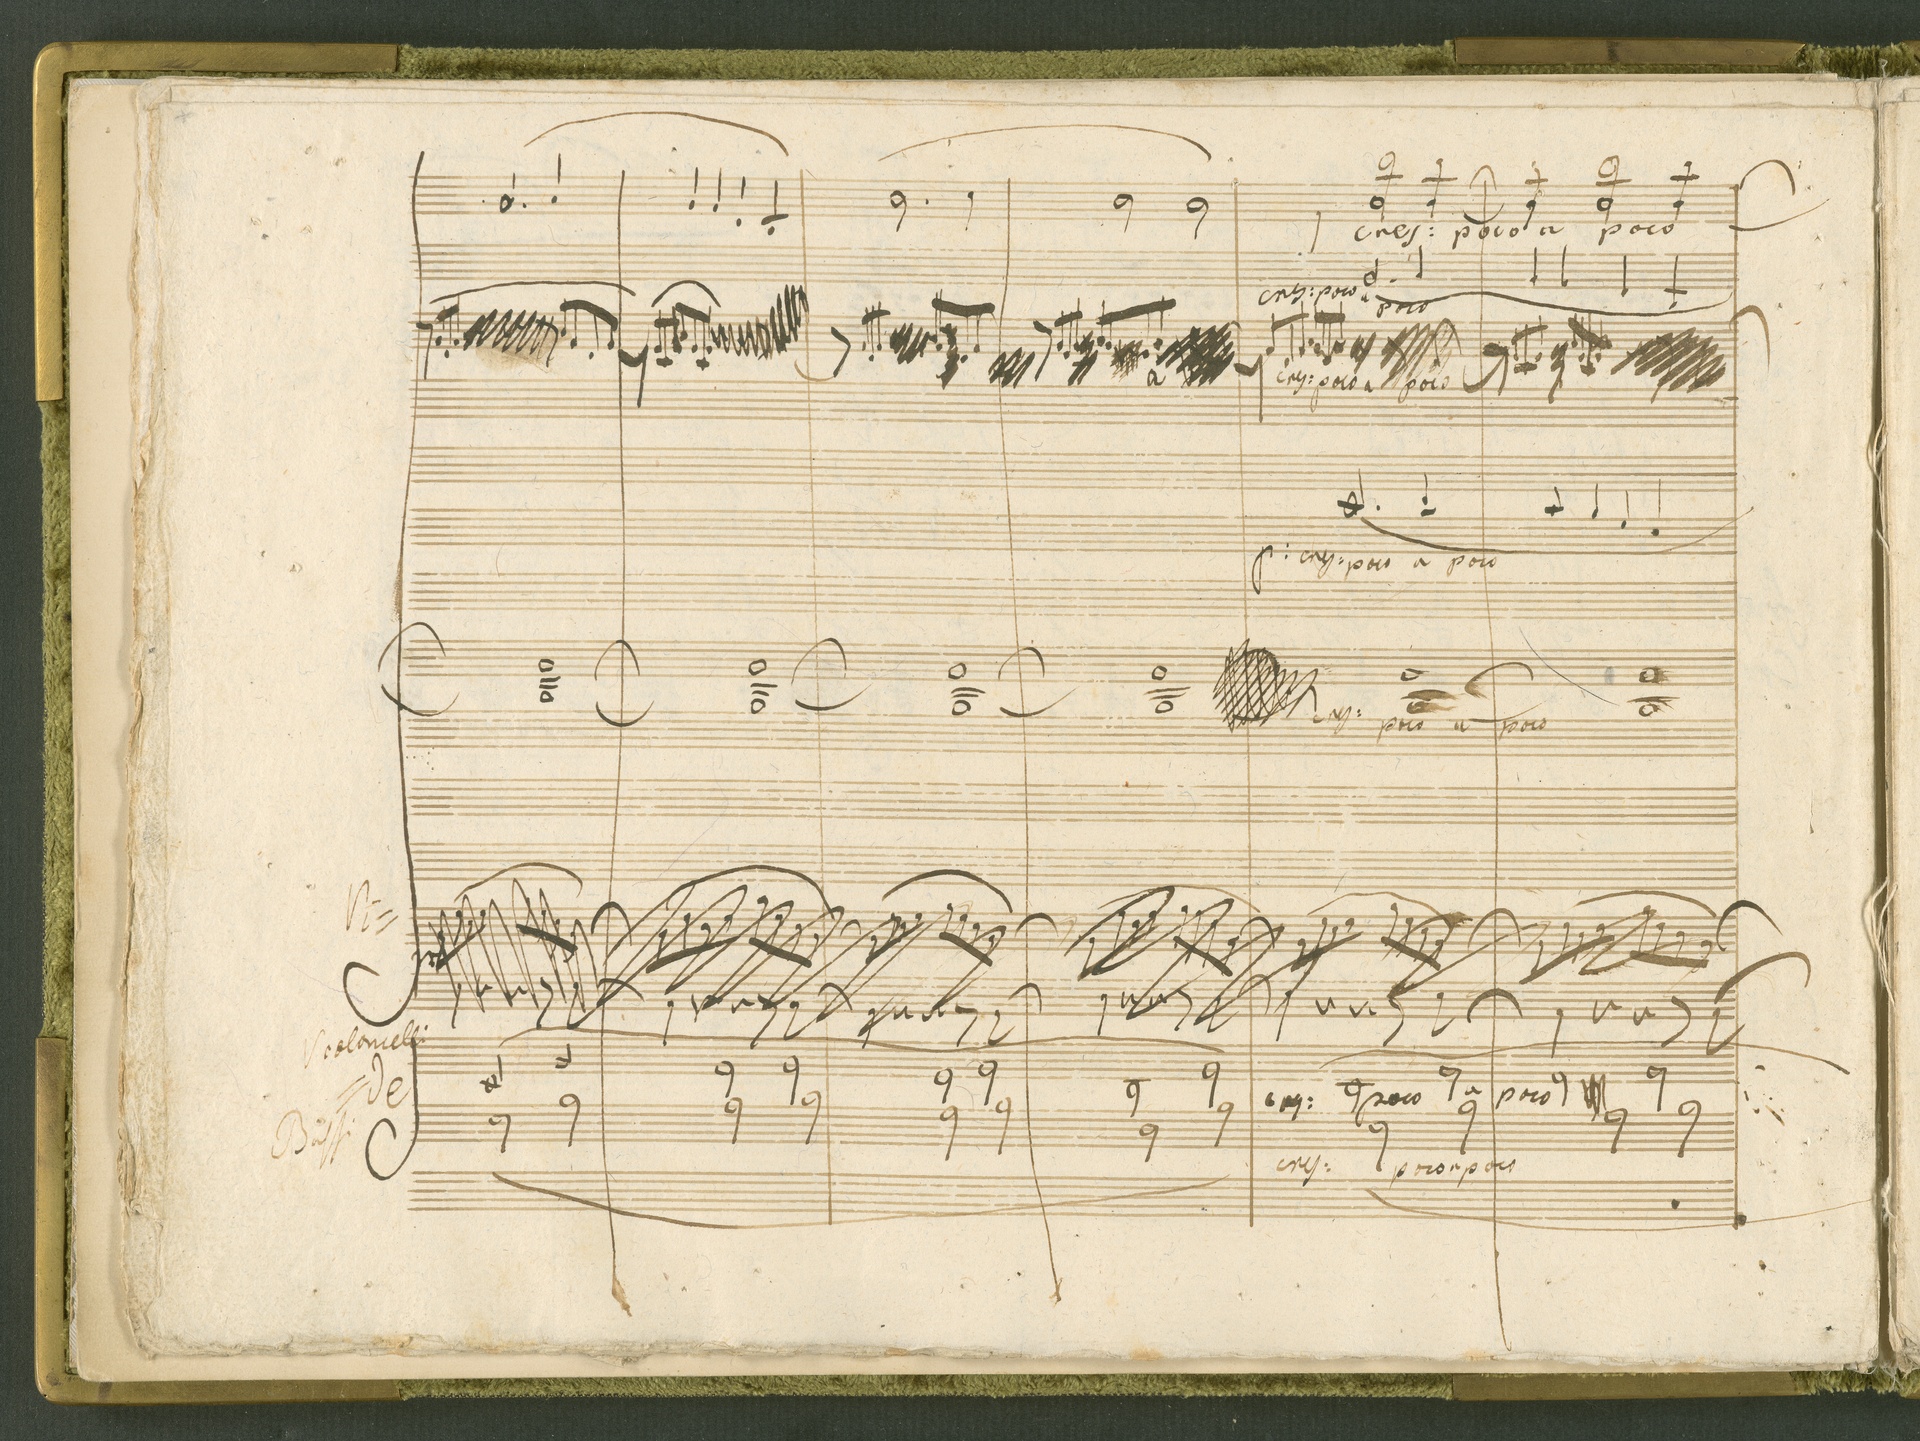 cres: poco a poco
cres: poco a
poco
cres: poco a poco
p: cres: poco a poco
cres: poco a poco
Violoncelli
cres: poco a poco
Bassi
cres: poco a poco